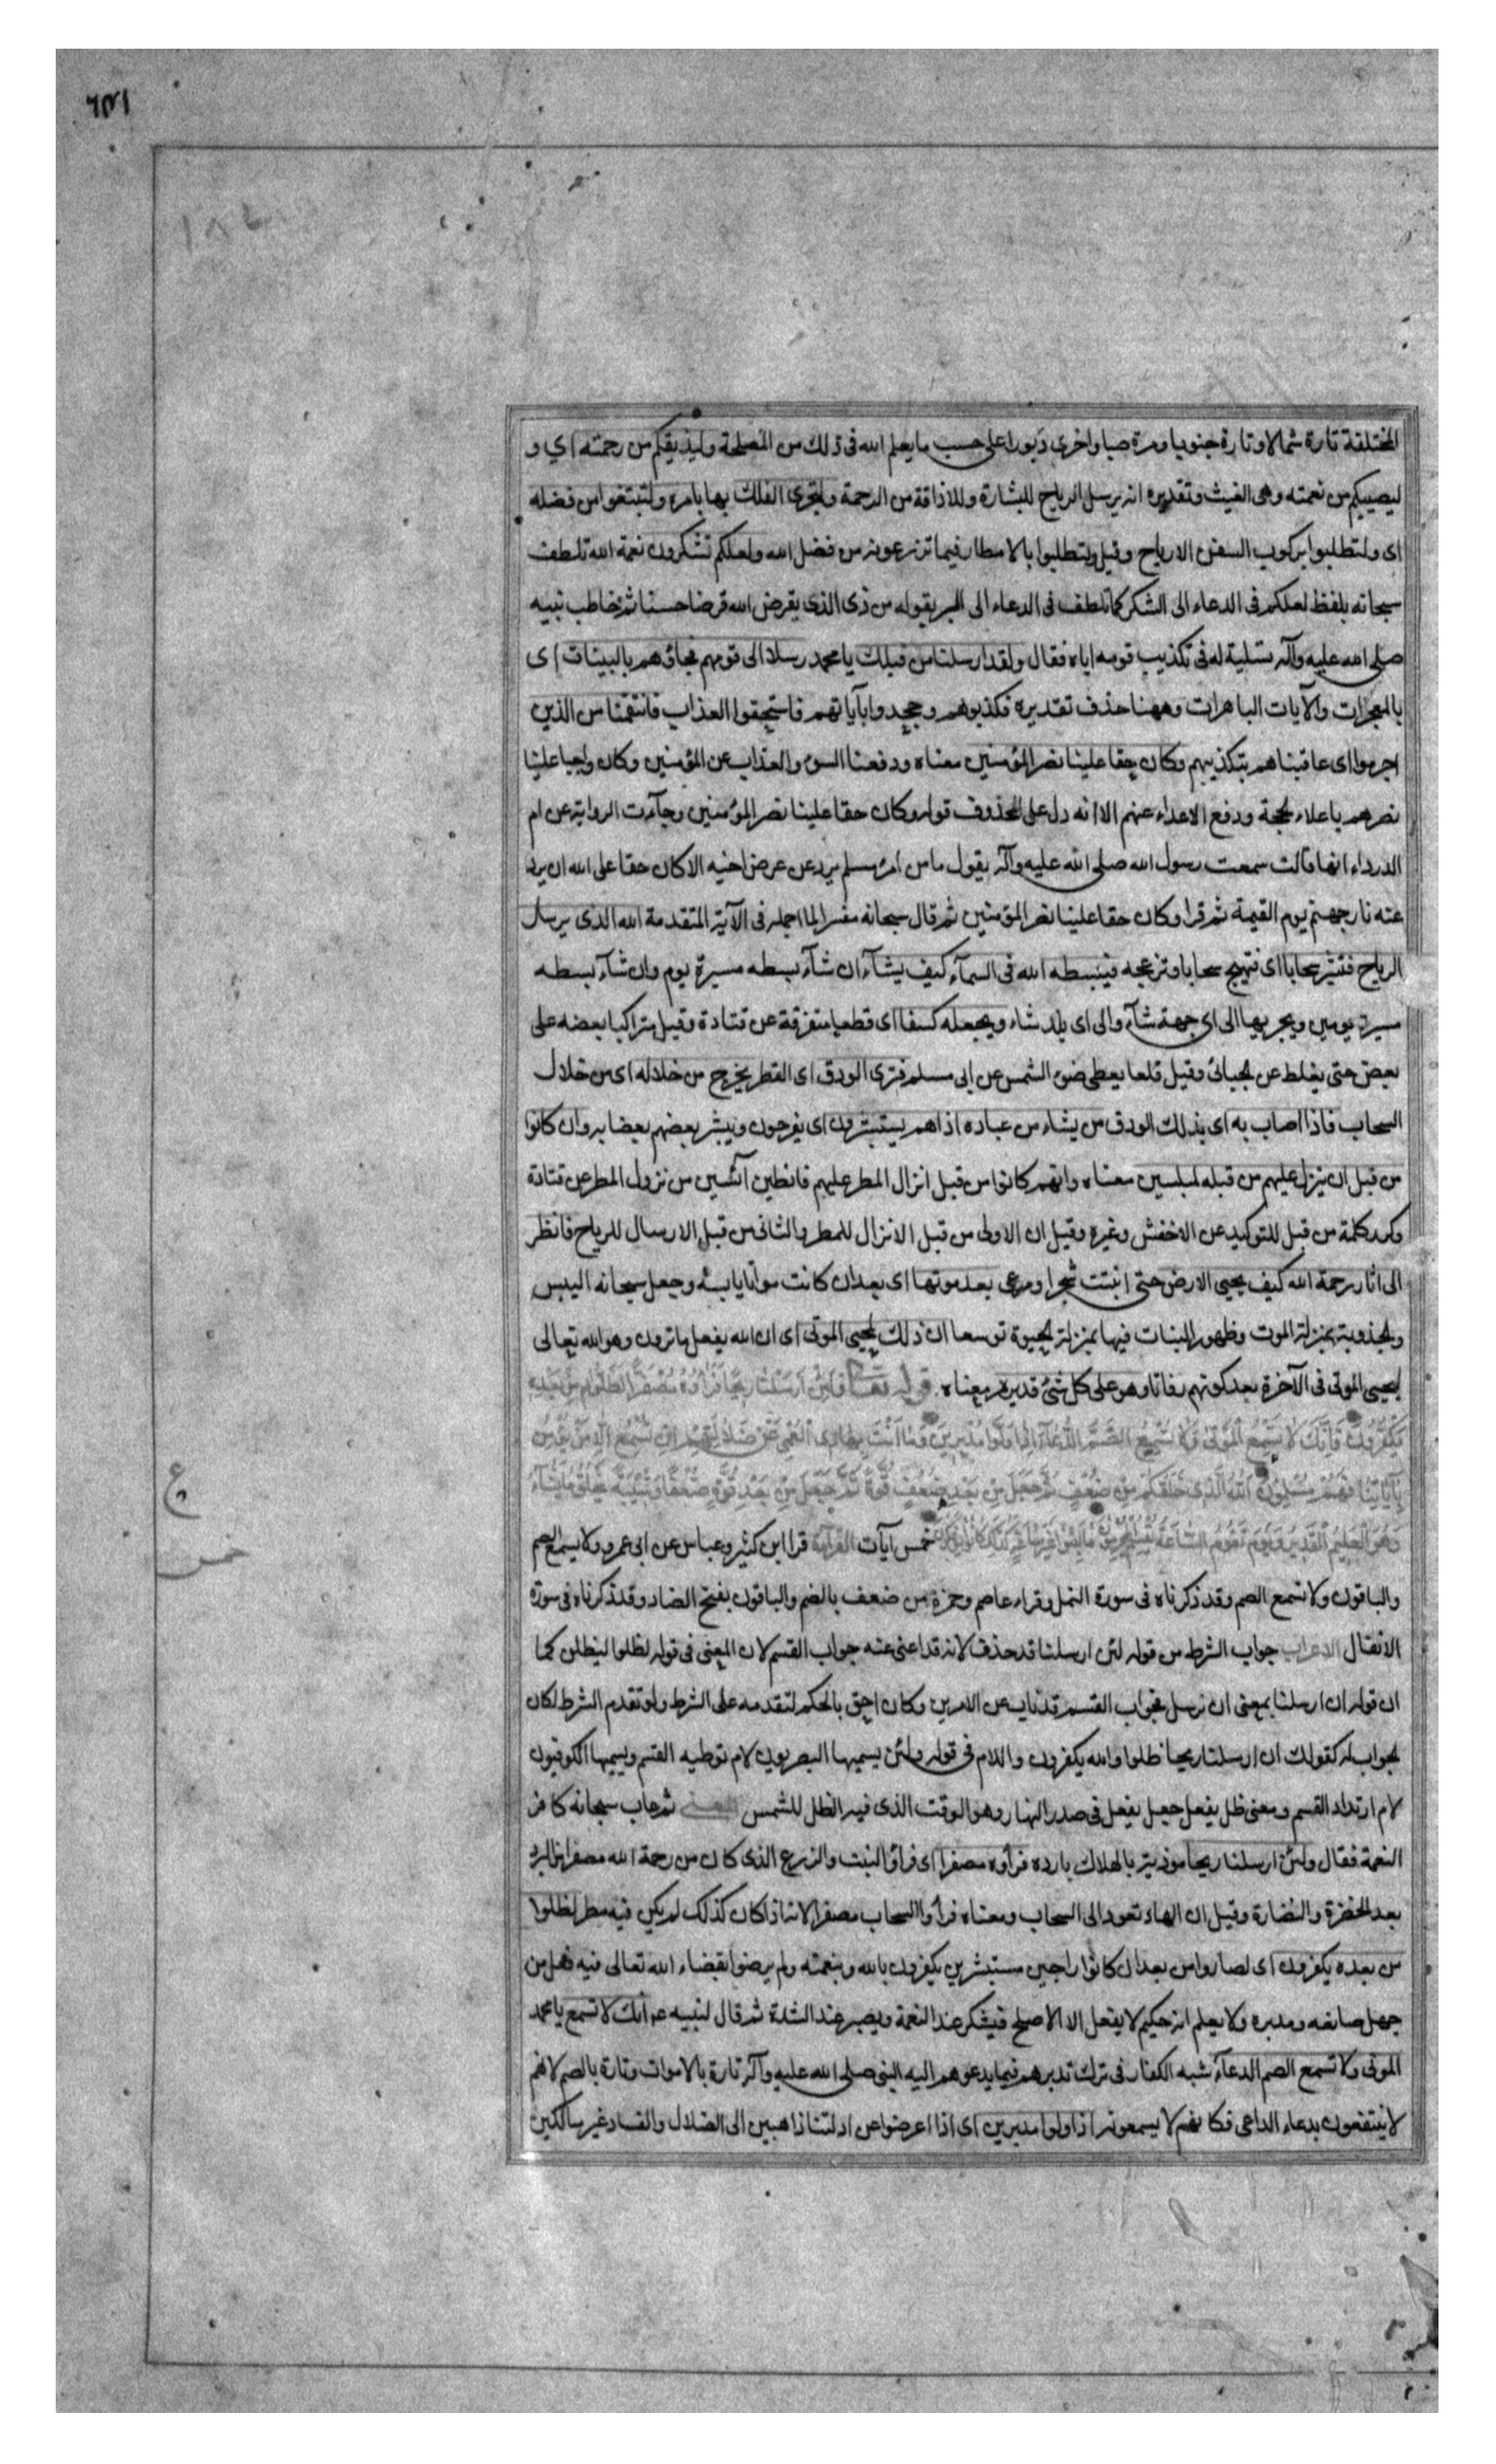 المختلفة تارة شمالا وتارة جنوبا ومرة صبا واخرى دبورا على حسب ما يعلم الله فى ذلك من المصلحة وليذيقكم من رحمته اي و
ليصيبكم من نعمته وهى الغيث وتقديره انه يرسل الرياح للبشارة وللاذاقة من الرحمة ولتجرى الفلك بها بامره ولتبتغوا من فضله
اى ولتطلبوا بركوب السفن الارباح وقيل ولتطلبوا بالامطار فيما تزرعونه من فضل الله ولعلكم تشكرون نعمة الله تلطف
سبحانه بلفظ لعلكم فى الدعاء الى الشكر كما تلطف فى الدعاء الى البر بقوله من ذى الذى يقرض الله قرضا حسنا ثم خاطب نبيه
صلى الله عليه وآله تسلية له فى تكذيب قومه اياه فقال ولقد ارسلنا من قبلك يا محمد رسلا الى قومهم فجاؤهم بالبينات اى
بالمعجزات والآيات الباهرات وههنا حذف تقديره فكذبوهم وجحدوا بآياتهم فاستحقوا العذاب فانتقمنا من الذين
اجرموا اى عاقبناهم بتكذيبهم وكان حقا علينا نصر المؤمنين معناه ودفعنا السوء والعذاب عن المؤمنين وكان واجبا علينا
نصرهم باعلاء الحجة ودفع الاعداء عنهم الا انه دل على المحذوف قوله وكان حقا علينا نصر المؤمنين وجآءت الرواية عن ام
الدرداء انها قالت سمعت رسول الله صلى الله عليه وآله يقول ما من امرء مسلم يرد عن عرض اخيه الا كان حقا على الله ان يرد
عنه نار جهنم يوم القيمة ثم قرا وكان حقا علينا نصر المؤمنين ثم قال سبحانه مفسرا لما اجمله فى الآية المتقدمة الله الذى يرسل
الرياح فتثير سحابا اى فتهيج سحابا وتزعجه فيبسطه الله فى السمآء كيف يشآء ان شآء بسطه مسيرة يوم وان شآء بسطه
مسيرة يومين ويجريها الى اى جهة شآء والى اى بلد شاء ويجعله كسفا اى قطعا متفرقة عن قتادة وقيل متراكبا بعضه على
بعض حتى يغلظ عن الجبائى وقيل قلعا يغطى ضوء الشمس عن ابى مسلم فترى الودق اى القطر يخرج من خلاله اى من خلال
السحاب فاذا اصاب به اى بذلك الودق من يشاء من عباده اذا هم يستبشرون اى يفرحون ويبشر بعضهم بعضا به وان كانوا
من قبل ان ينزل عليهم من قبله لمبلسين معناه وانهم كانوا من قبل انزال المطر عليهم قانطين آئسين من نزول المطر عن قتادة
وكرر كلمة من قبل للتوكيد عن الاخفش وغيره وقيل ان الاولى من قبل الانزال للمطر والثانى من قبل الارسال للرياح فانظر
الى اثار رحمة الله كيف يحيى الارض حتى انبتت شجرا ومرعى بعد موتها اى بعد ان كانت مواتا يابسة وجعل سبحانه اليبس
والجدوبة بمنزلة الموت وظهور النبات فيها بمنزلة الحيوة توسعا ان ذلك لمحيى الموتى اى ان الله يفعل ما ترون وهو الله تعالى
ليحيى الموتى فى الآخرة بعد كونهم رفاتا وهو على كل شئ قدير مر معناه قوله تعالى وَلَئِنْ أَرْسَلْنَا رِيحًا فَرَأَوْهُ مُصْفَرًّا لَظَلُّوا مِنْ بَعْدِهِ
يَكْفُرُونَ فَإِنَّكَ لَا تُسْمِعُ الْمَوْتَى وَلَا تُسْمِعُ الصُّمَّ الدُّعَآءَ إِذَا وَلَّوْا مُدْبِرِينَ وَمَا أَنْتَ بِهَادِى الْعُمْيِ عَنْ ضَلَالَتِهِمْ إِنْ تُسْمِعُ إِلَّا مَنْ يُؤْمِنُ
بِآيَاتِنَا فَهُمْ مُسْلِمُونَ اَللّٰهُ الَّذِى خَلَقَكُمْ مِنْ ضَعْفٍ ثُمَّ جَعَلَ مِنْ بَعْدِ ضَعْفٍ قُوَّةً ثُمَّ جَعَلَ مِنْ بَعْدِ قُوَّةٍ ضَعْفًا وَشَيْبَةً يَخْلُقُ مَا يَشَآءُ
وَهُوَ الْعَلِيمُ الْقَدِيرُ وَيَوْمَ تَقُومُ السَّاعَةُ يُقْسِمُ الْمُجْرِمُونَ مَا لَبِثُوا غَيْرَ سَاعَةٍ كَذَلِكَ كَانُوا يُؤْفَكُونَ خمس آيات القراءة قرا ابن كثير وعباس عن ابى عمرو ولا يسمع الصم
والباقون ولا تسمع الصم وقد ذكرناه فى سورة النمل وقراء عاصم وحمزة من ضعف بالضم والباقون بفتح الضاد وقد ذكرناه فى سورة
الانفال الاعراب جواب الشرط من قوله لئن ارسلنا قد حذف لانه قد اغنى عنه جواب القسم لان المعنى فى قوله لظلوا ليظلن كما
ان قوله ان ارسلنا بمعنى ان نرسل فجواب القسم قد ناب عن الامرين وكان احق بالحكم لتقدمه على الشرط ولو تقدم الشرط لكان
الجواب له كقولك ان ارسلنا ريحا ظلوا والله يكفرون واللام فى قوله ولئن يسميها البصريون لام توطية القسم ويسميها الكوفيون
لام ارتداد القسم ومعنى ظل يفعل جعل يفعل فى صدر النهار وهو الوقت الذى فيه الظل للشمس المعنى ثم عاب سبحانه كافر
النعمة فقال ولئن ارسلنا ريحا موذية بالهلاك باردة فرأوه مصفرا اى فرأوا النبت والزرع الذى كان من رحمة الله مصفرا من البرد
بعد الخضرة والنضارة وقيل ان الهاء تعود الى السحاب ومعناه فرأوا السحاب مصفرا لانه اذا كان كذلك لم يكن فيه مطر لظلوا
من بعده يكفرون اى لصاروا من بعد ان كانوا راجين مستبشرين يكفرون بالله وبنعمته ولم يرضوا بقضاء الله تعالى فيه فعل من
جهل صانعه ومدبره ولا يعلم انه حكيم لا يفعل الا الاصلح فيشكر عند النعمة ويصبر عند الشدة ثم قال لنبيه عم انك لا تسمع يا محمد
الموتى ولا تسمع الصم الدعآء شبه الكفار فى ترك تدبرهم فيما يدعوهم اليه النبى صلى الله عليه وآله تارة بالاموات وتارة بالصم لانهم
لا ينتفعون بدعاء الداعى فكانهم لا يسمعونه اذا ولوا مدبرين اى اذا اعرضوا عن ادلتنا ذاهبين الى الضلال والفساد غير سالكين
ع
خمس